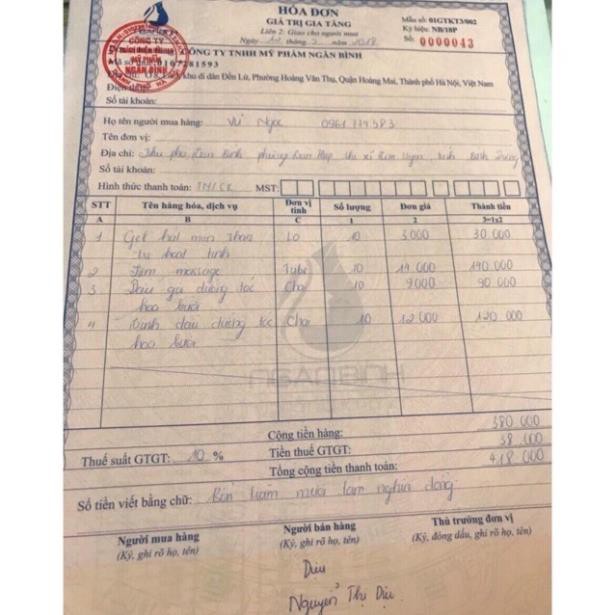 HÓA ĐƠN
GIÁ TRỊ GIA TĂNG
Liên 2: Giao cho người mua
Ngày tháng năm 2018
Mẫu số: 01GTKT3/002
Ký hiệu: NB/18P
Số: 0000043
CÔNG TY
MỸ PHẨM
NGÂN BÌNH
CÔNG TY TNHH MỸ PHẨM NGÂN BÌNH
Mã số thuế: 0107281593
khu di dân Đền Lừ, Phường Hoàng Văn Thụ, Quận Hoàng Mai, Thành phố Hà Nội, Việt Nam
Điện thoại:
Số tài khoản:
Họ tên người mua hàng: Vũ Ngọc 0961779583
Tên đơn vị:
Địa chỉ: Khu phố Tân Bình phường Tân Hiệp thị xã Tân Uyên, tỉnh Bình Dương
Số tài khoản:
Hình thức thanh toán: TM/CK MST:
STT Tên hàng hóa, dịch vụ Đơn vị tính Số lượng Đơn giá Thành tiền
A B C 1 2 3=1x2
1 Gel hạt mịn than Lọ 10 3.000 30 000
tre hoạt tính
2 Kem massage Tube 10 14 000 140 000
3 Dầu gội dưỡng tóc Chai 10 9000 90 000
hoa bưởi
4 Tinh dầu dưỡng tóc Chai 10 12 000 120 000
hoa bưởi
NGANBINH
Cộng tiền hàng: 380 000
Thuế suất GTGT: 10 % Tiền thuế GTGT: 38 000
Tổng cộng tiền thanh toán: 418 000
Số tiền viết bằng chữ: Bốn trăm mười tám nghìn đồng
Người mua hàng Người bán hàng Thủ trưởng đơn vị
(Ký, ghi rõ họ, tên) (Ký, ghi rõ họ, tên) (Ký, đóng dấu, ghi rõ họ, tên)
Dịu
Nguyễn Thị Dịu